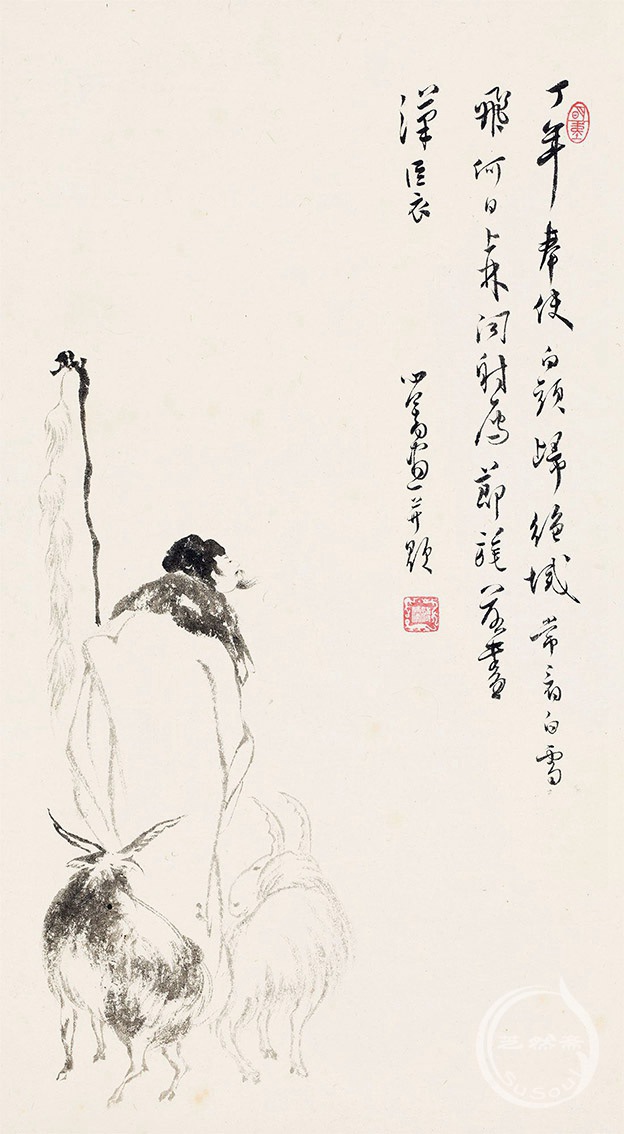 丁年奉使白頭歸絕域常看白雪
飛何日上林聞射雁節旄落盡
漢臣衣
心畬畫并題
SuSoul